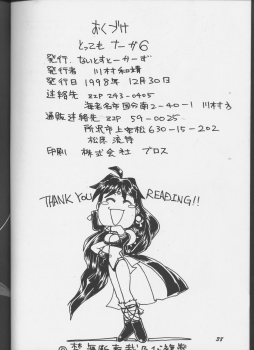 おくづけ
とっても ナーガ6
発行. ないとすとーかーず
発行者 川村和靖
発行日 1998年 12月30日
連絡先 〒 243-0405
海老名市国分南2-40-1 川村方
通販連絡先 〒 59-0025
所沢市上安松630-15-202
松原 方
印刷 株式会社 プロス
THANK YOU READING!!
禁無断転載